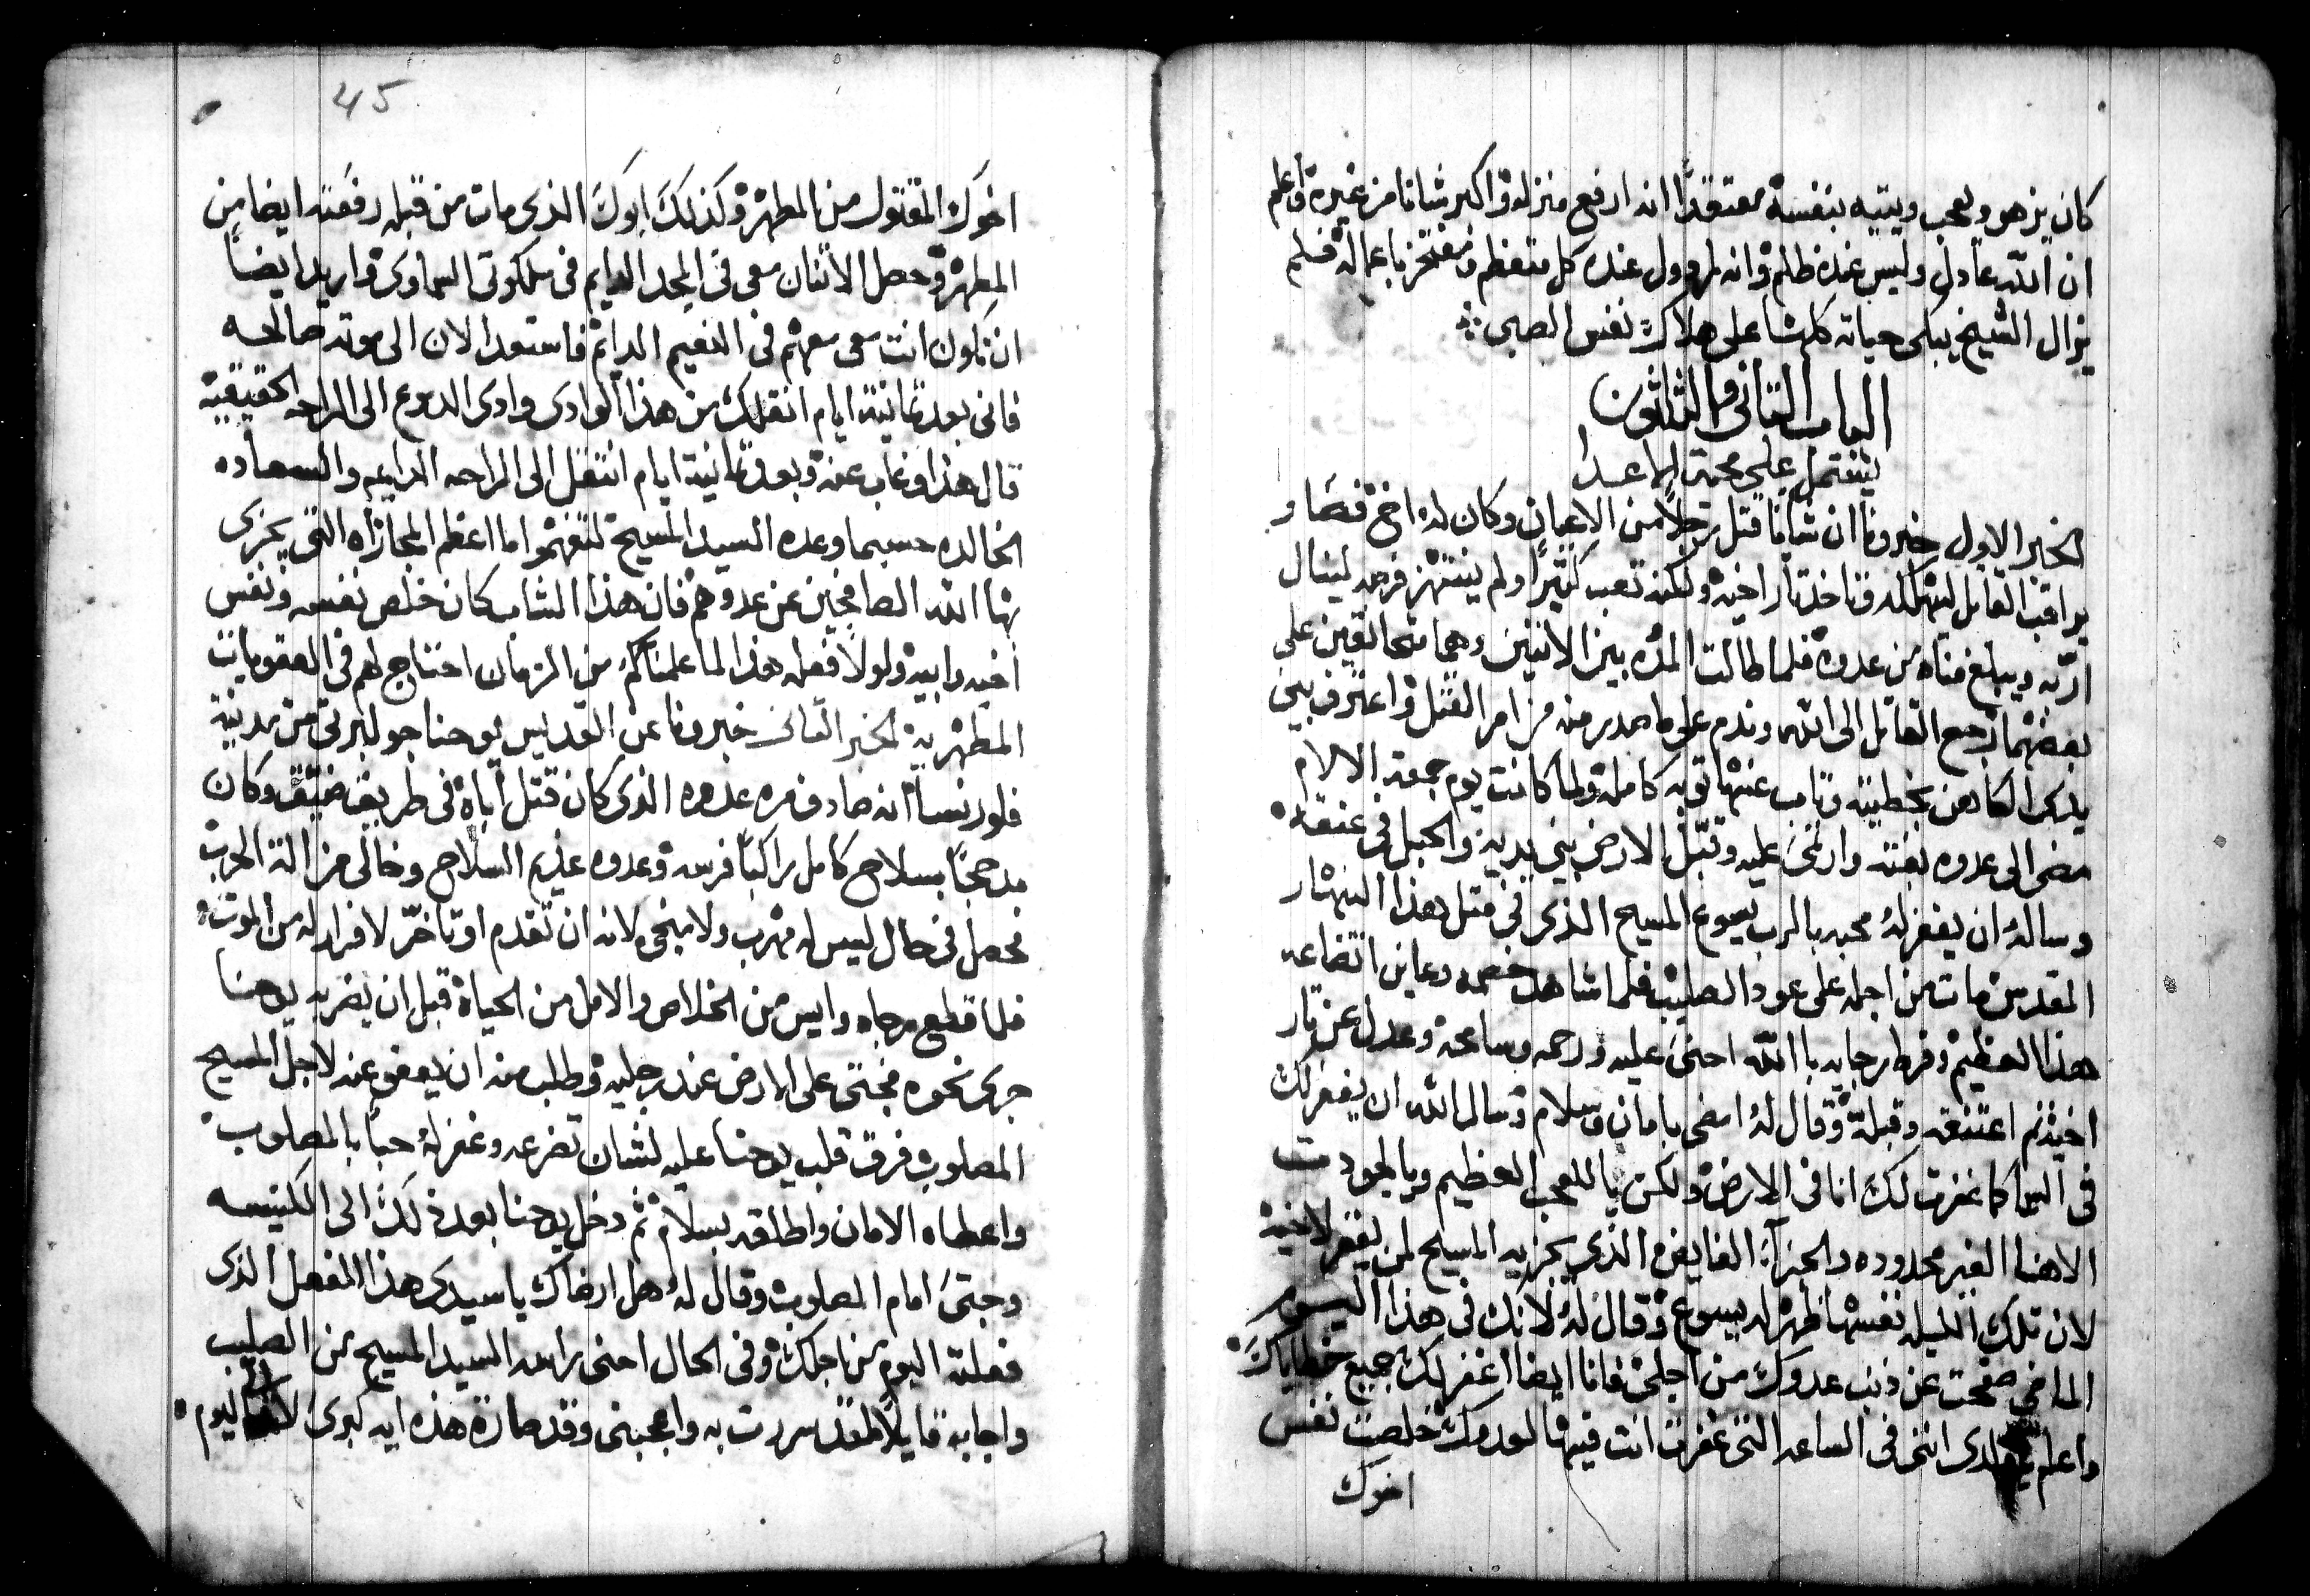 كان يزهو ويعجب ويتيه بنفسه معتقدًا انه ارفع منزله واكبر شانا من غيره واعلم
ان الله عادل وليس عنده ظلم وانه مرذول عنده كل متعظم ومفتخر باعماله فلم
يزال الشيخ يبكى حياته كلها على هلاك نفس الصبي
الباب الثانى والثلثون
يشتمل على محبة الاعدا
الخبر الاول خبرونا ان شابًا قتل رجلاً من الاعيان وكان له اخ فصار
يراقب القاتل ليهلكه وياخذ تار اخيه ولكنه تعب كثيرًا ولم ينتهز فرصه لينال
اربه ويبلغ مناه من عدوه فلما طالت المده بين الاثنين وهما متحانقين على
بعضهما رجع القاتل الى الله وندم على ما صدر منه من امر القتل واعترف بين
يدى الكاهن بخطيته وتاب عنها توبه كامله ولما كانت يوم جمعة الالام
مضى الى عدوه بغته وارتمى عليه وقبّل الارض بين يديه والحبل فى عنقه
وساله ان يغفر له محبه بالرب يسوع المسيح الذى فى مثل هذا النهار
المقدس مات من اجله على عود الصليب فلما شاهد خصمه وعاين اتضاعه
هذا العظيم وفرط رجايه باالله احنى عليه ورحمه وسامحه وعدل عن تار
اخيه ثم اعتنقه وقبله وقال له امضى بامان وسلام وسال الله ان يغفر لك
فى السما كما غفرت لك انا فى الارض ولكن ياللعجب العظيم ويالجودت
الاهنا الغير محدوده والجزآ الفايض الذى يجزيه المسيح لمن يغفر لاخيه
لان تلك الليله نفسها ظهر له يسوع وقال له لانك فى هذا اليوم
الماضى صفحت عن ذنب عدوك من اجلى فانا ايضا اغفر لك جميع خطاياك
واعلم ياولدى اننى فى الساعه التى غفرت انت فيها لعدوك خلصت نفس
اخوك
45
اخوك المقتول من المطهر وكذلك ابوك الذى مات من قبله رفعته ايضا من
المطهر وحصل الاثنان معى فى المجد الدايم فى ملكوتى السماوى واريد ايضاً
ان تكون انت معى معهم فى النعيم الدايم فاستعد الان الى موته صالحه
فانى بعد ثمانية ايام انقلك من هذا الوادى وادى الدموع الى الراحه الحقيقيه
قال هذا وغاب عنه وبعد ثمانية ايام انتقل الى الراحه الدايمه والسعاده
الخالده حسبما وعده السيد المسيح لتفهموا ما اعظم المجازاه التى يجزى
بها الله الصافحين عن عدوهم فان هذا الشاب كان خلص نفسه ونفس
اخيه وابيه ولولا فعله هذا لما علمنا كم من الزمان احتاج لهم فى العقوبات
المطهريه الخبر الثانى خبرونا عن القديس يوحنا جولبرتى من مدينة
فلورنسا انه صادف مره عدوه الذى كان قتل اباه فى طريق ضيق وكان
مدججًا بسلاح كامل راكبًا فرسه وعدوه عديم السلاح وخالى من الة الحرب
فحصل فى حال ليس له مهرب ولا منجى لانه ان تقدم او تاخّر لا فرار له من الموت
فلما قطع رجاه وايس من الخلاص والامل من الحياة قبل ان يضربه يوحنا
جرى نحوه فجثى على الارض عند رجليه وطلب منه ان يعفو عنه لاجل المسيح
المصلوب فرق قلب يوحنا عليه لشان تضرعه وغفر له حبًا بالمصلوب
واعطاه الامان واطلقه بسلام ثم دخل يوحنا بعد ذلك الى الكنيسه
وجثى امام المصلوب وقال له هل ارضاك يا سيدى هذا الفعل الذى
فعلته اليوم من اجلك وفى الحال احنى راسه السيد المسيح من الصليب
واجابه قايلاً لقد سررت به واعجبنى وقد صارة هذه ايه كبرى اليوم